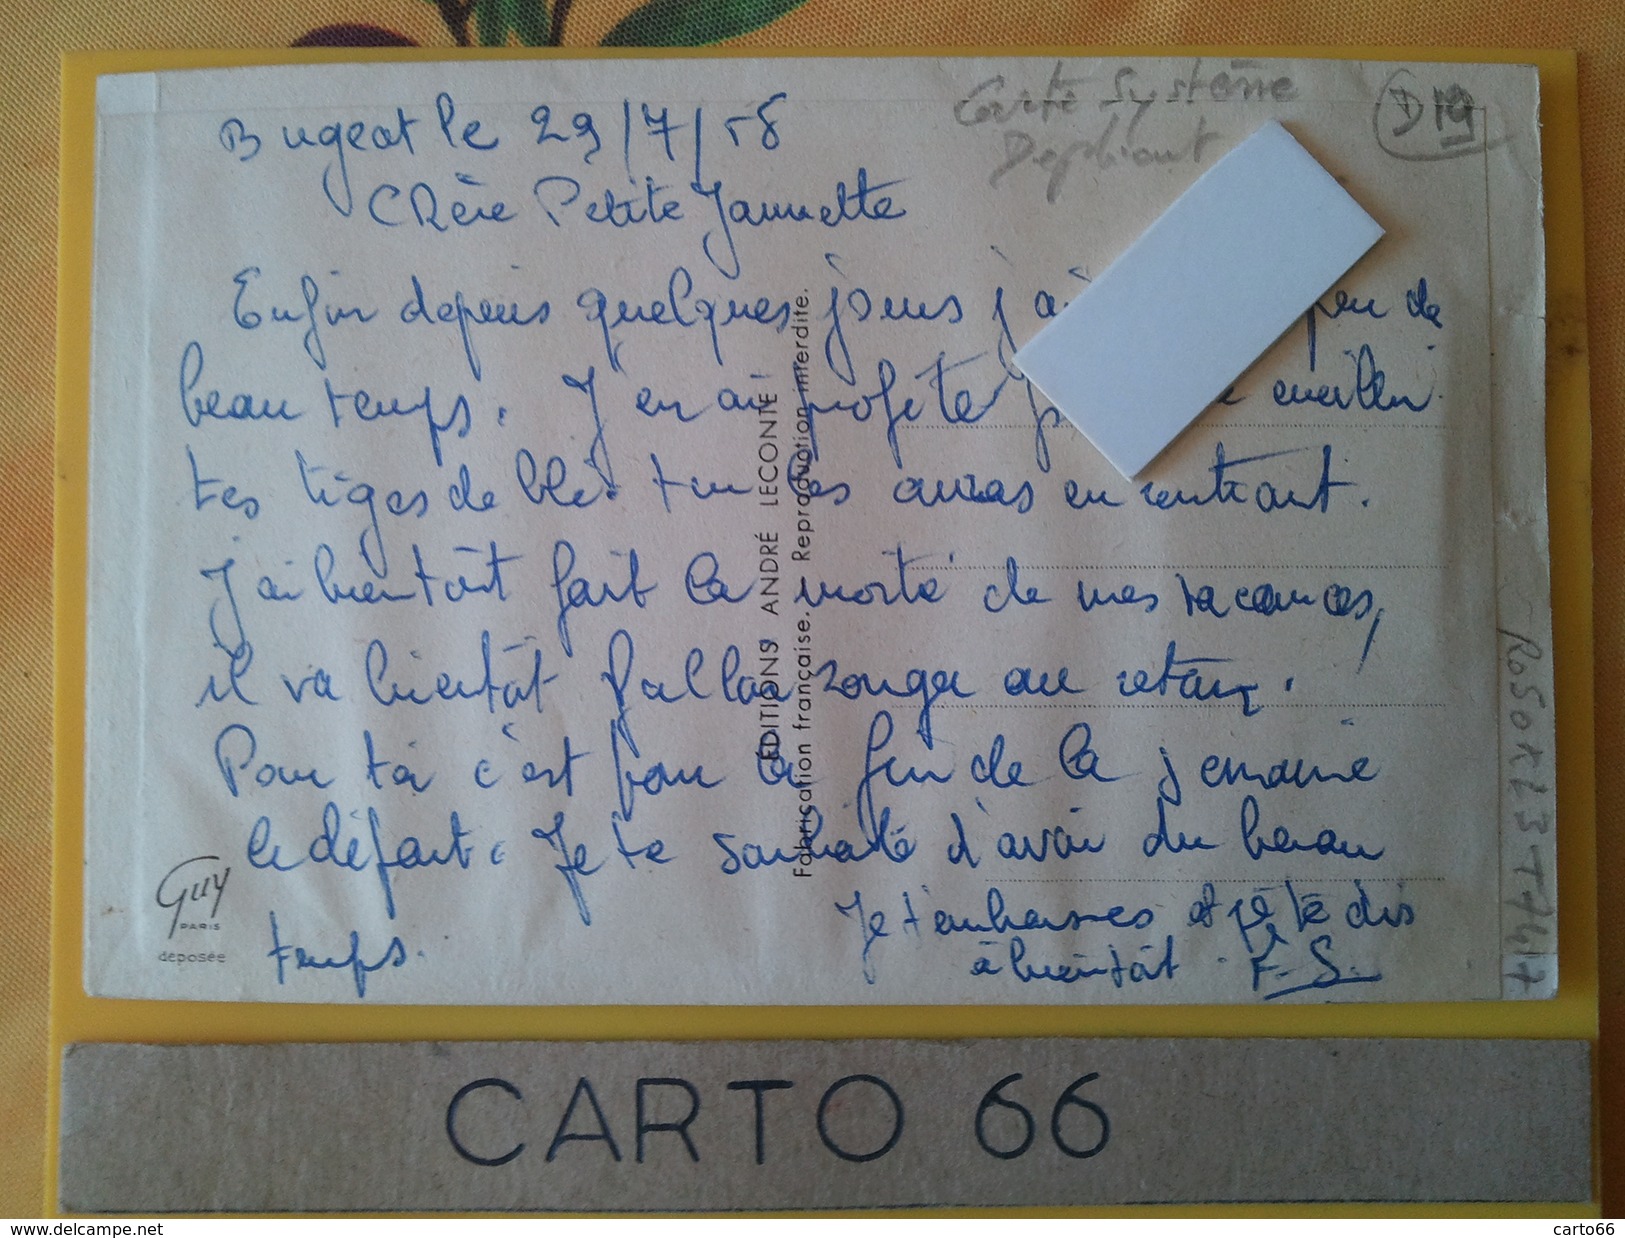 Carte système
Dépliant
D19
Bugeat le 29/7/58
Chère Petite Jannette
Enfin depuis quelques jours j'ai peu de
beau temps. J'en ai profité
tes tiges de blé. tu les auras en rentrant.
J'ai bientôt fait la moitié de mes vacances,
il va bientôt falloir songer au retour.
Pour toi c'est pour la fin de la semaine
le départ. Je te souhaite d'avoir du beau
temps.
Je t'embrasse et je te dis
à bientôt. F. S.
ÉDITIONS ANDRÉ LECONTE
Fabrication française. Reproduction interdite.
Guy
PARIS
déposée
CARTO 66
www.delcampe.net
carto66